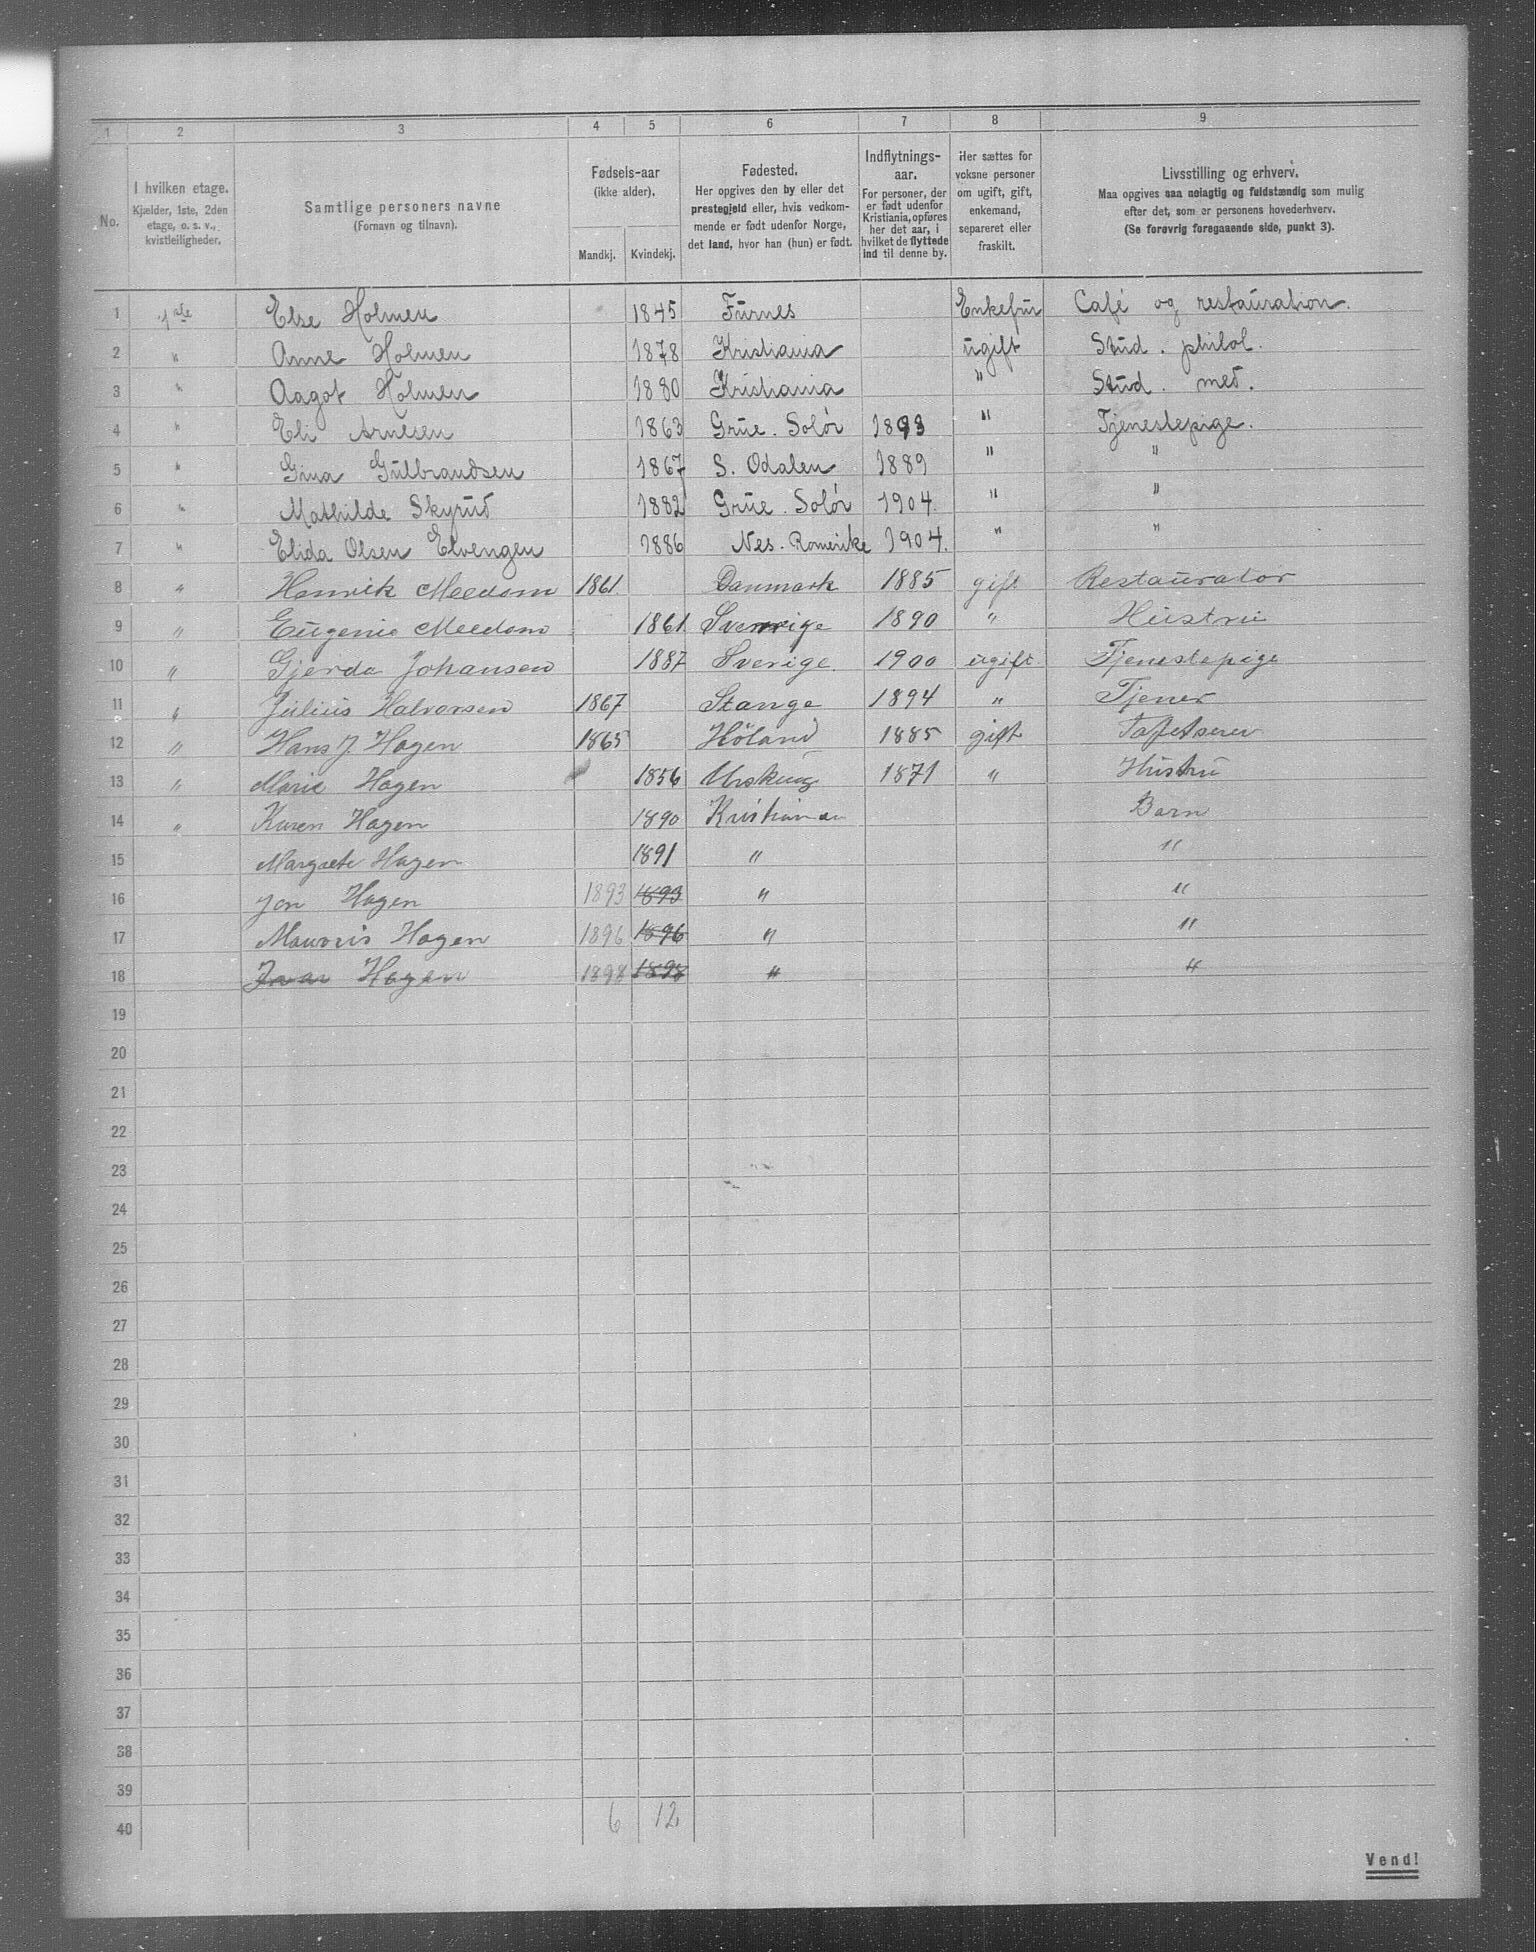 1 2 3 4 5 6 7 8 9
No. I hvilken etage. Kjælder, 1ste, 2den etage, o. s. v., kvistleiligheder. Samtlige personers navne (Fornavn og tilnavn). Fødsels-aar (ikke alder). Mandkj. Kvindekj. Fødested. Her opgives den by eller det prestegjeld eller, hvis vedkommende er født udenfor Norge, det land, hvor han (hun) er født. Indflytnings-aar. For personer, der er født udenfor Kristiania, opføres her det aar, i hvilket de flyttede ind til denne by. Her sættes for voksne personer om ugift, gift, enkemand, separeret eller fraskilt. Livsstilling og erhverv. Maa opgives saa nøiagtig og fuldstændig som mulig efter det, som er personens hovederhverv. (Se forøvrig foregaaende side, punkt 3).
1 1ste Else Holmen 1845 Furnes Enkefru Café og restauration.
2 " Anne Holmen 1878 Kristiania ugift Stud. philol.
3 " Aagot Holmen 1880 Kristiania " Stud. med.
4 " Eli Arnesen 1863 Grue. Solør 1893 " Tjenestepige.
5 " Gina Gulbrandsen 1867 S. Odalen 1889 " "
6 " Mathilde Skyrud 1882 Grue. Solør 1904. " "
7 " Elida Olsen Elvengen 1886 Nes. Romerike 1904. " "
8 " Henrik Meedom 1861. Danmark 1885 gift Restauratør
9 " Eugenie Meedom 1861 Sverrige 1890 " Hustru
10 " Gjerda Johansen 1887 Sverige. 1900 ugift. Tjenestepige
11 " Julius Halvorsen 1867 Stange 1894 " Tjener
12 " Hans J. Hagen 1865 Høland 1885 gift Tapetserer
13 " Marie Hagen 1856 Urskoug 1871 " Hustru
14 " Karen Hagen 1890 Kristiania Barn
15 Margrete Hagen 1891 " "
16 Jon Hagen 1893 1893 " "
17 Mauritz Hagen 1896 1896 " "
18 Ivar Hagen 1898 1898 " "
19
20
21
22
23
24
25
26
27
28
29
30
31
32
33
34
35
36
37
38
39
40 6 12
Vend!